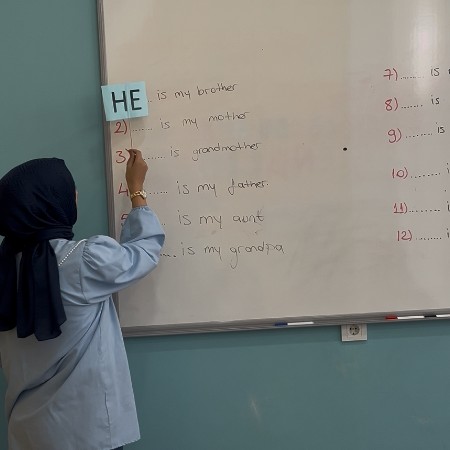 HE is my brother
2) ..... is my mother
3) ..... is grandmother
4 ..... is my father.
5 is my aunt
.... is my grandpa
7) ..... is
8) ..... is
9) ..... is
10) .....
11) .....
12) .....